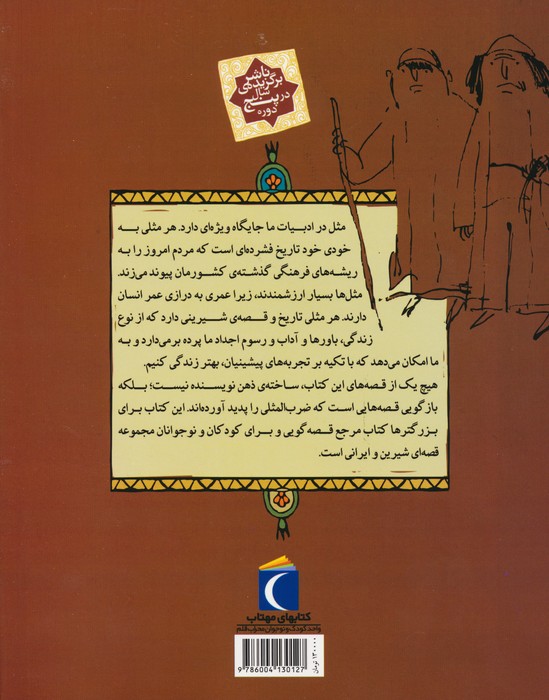 ناشر
برگزیده‌ی
سال
در پنج
دوره
مثل در ادبیات ما جایگاه ویژه‌ای دارد. هر مثلی به
خودی خود تاریخ فشرده‌ای است که مردم امروز را به
ریشه‌های فرهنگی گذشته‌ی کشورمان پیوند می‌زند.
مثل‌ها بسیار ارزشمندند، زیرا عمری به درازی عمر انسان
دارند. هر مثلی تاریخ و قصه‌ی شیرینی دارد که از نوع
زندگی، باورها و آداب و رسوم اجداد ما پرده برمی‌دارد و به
ما امکان می‌دهد که با تکیه بر تجربه‌های پیشینیان، بهتر زندگی کنیم.
هیچ یک از قصه‌های این کتاب، ساخته‌ی ذهن نویسنده نیست؛ بلکه
بازگویی قصه‌هایی است که ضرب‌المثلی را پدید آورده‌اند. این کتاب برای
بزرگترها کتاب مرجع قصه‌گویی و برای کودکان و نوجوانان مجموعه
قصه‌ای شیرین و ایرانی است.
کتابهای مهتاب
واحد کودک و نوجوان محراب قلم
9 786004 130127
۱۳۰۰۰۰ تومان